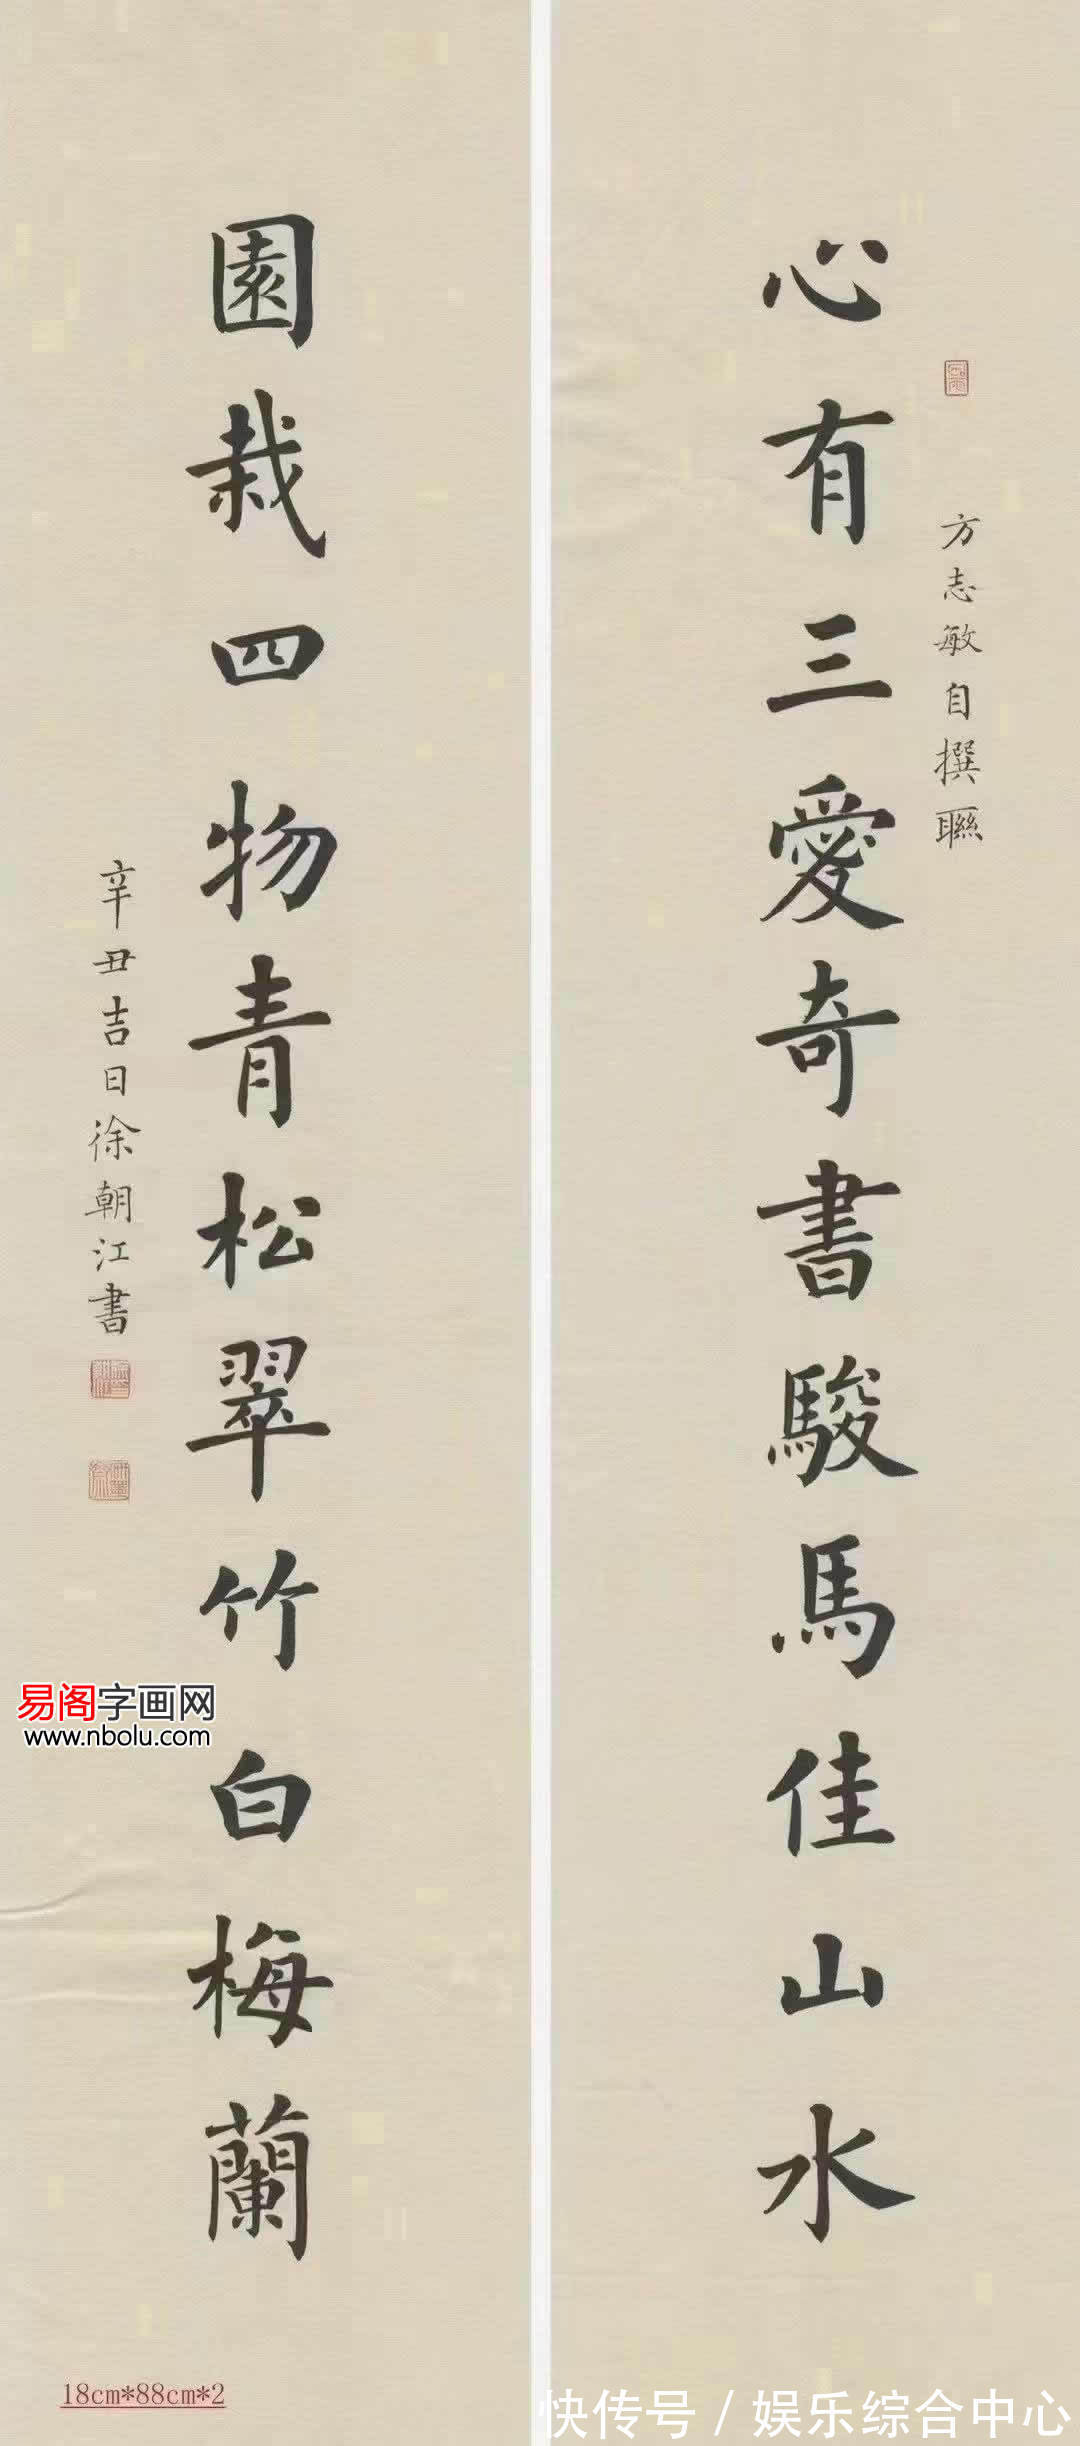 心有三愛奇書駿馬佳山水
方志敏自撰聯
園栽四物青松翠竹白梅蘭
辛丑吉日徐朝江書
易阁字画网
www.nbolu.com
18cm*88cm*2
快传号／娱乐综合中心